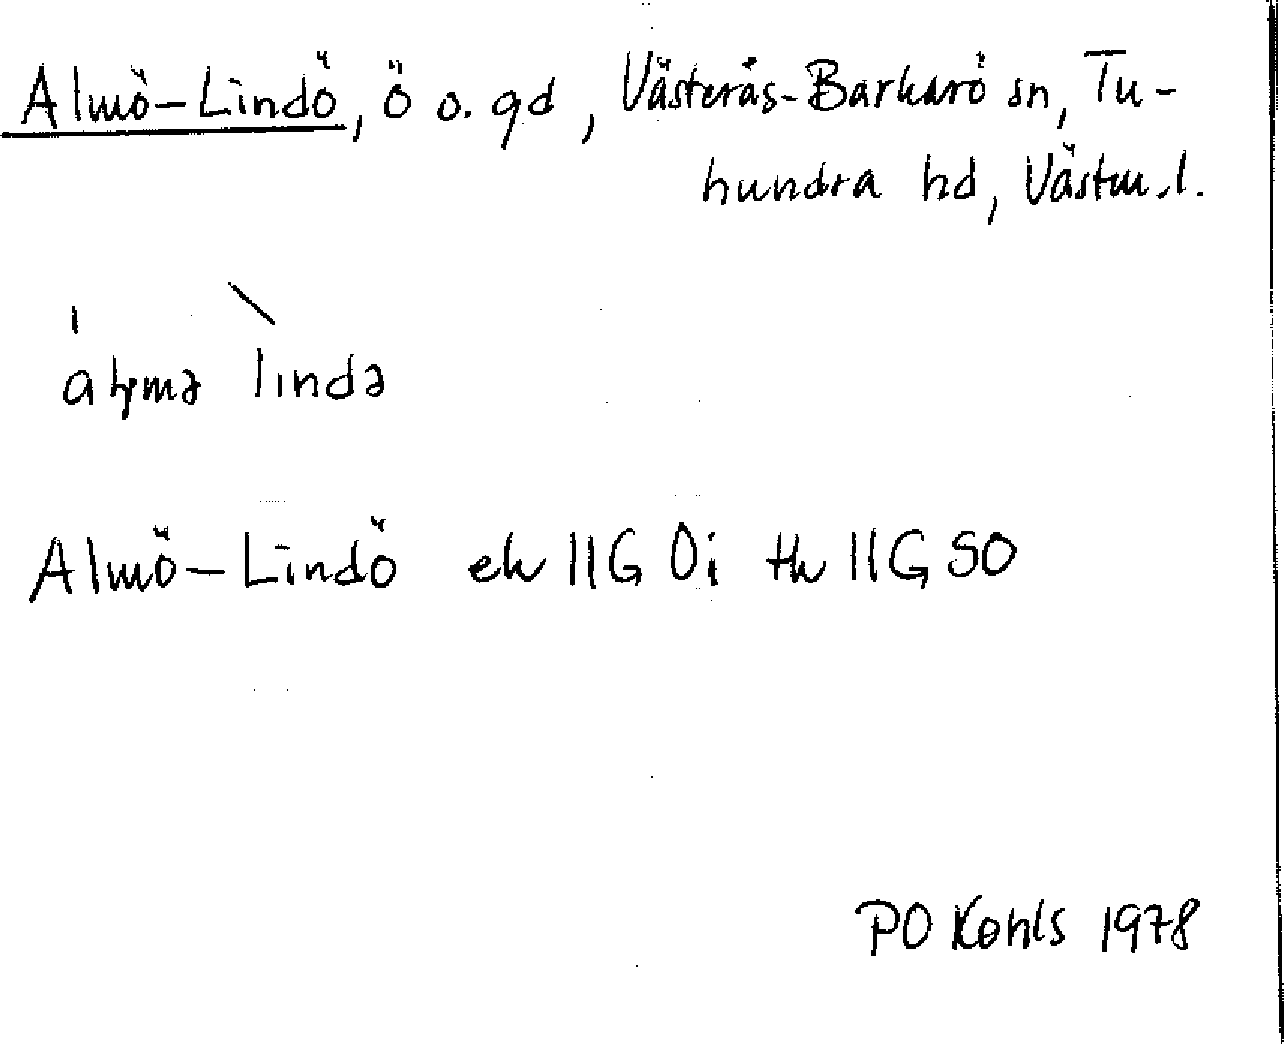 Almö-Lindö, ö o. gd, Västerås-Barkarö sn, Tu-
hundra hd, Västm.l.
alɱmə lində
Almö-Lindö ek 11G 0i tk 11G SO
PO Kohls 1978